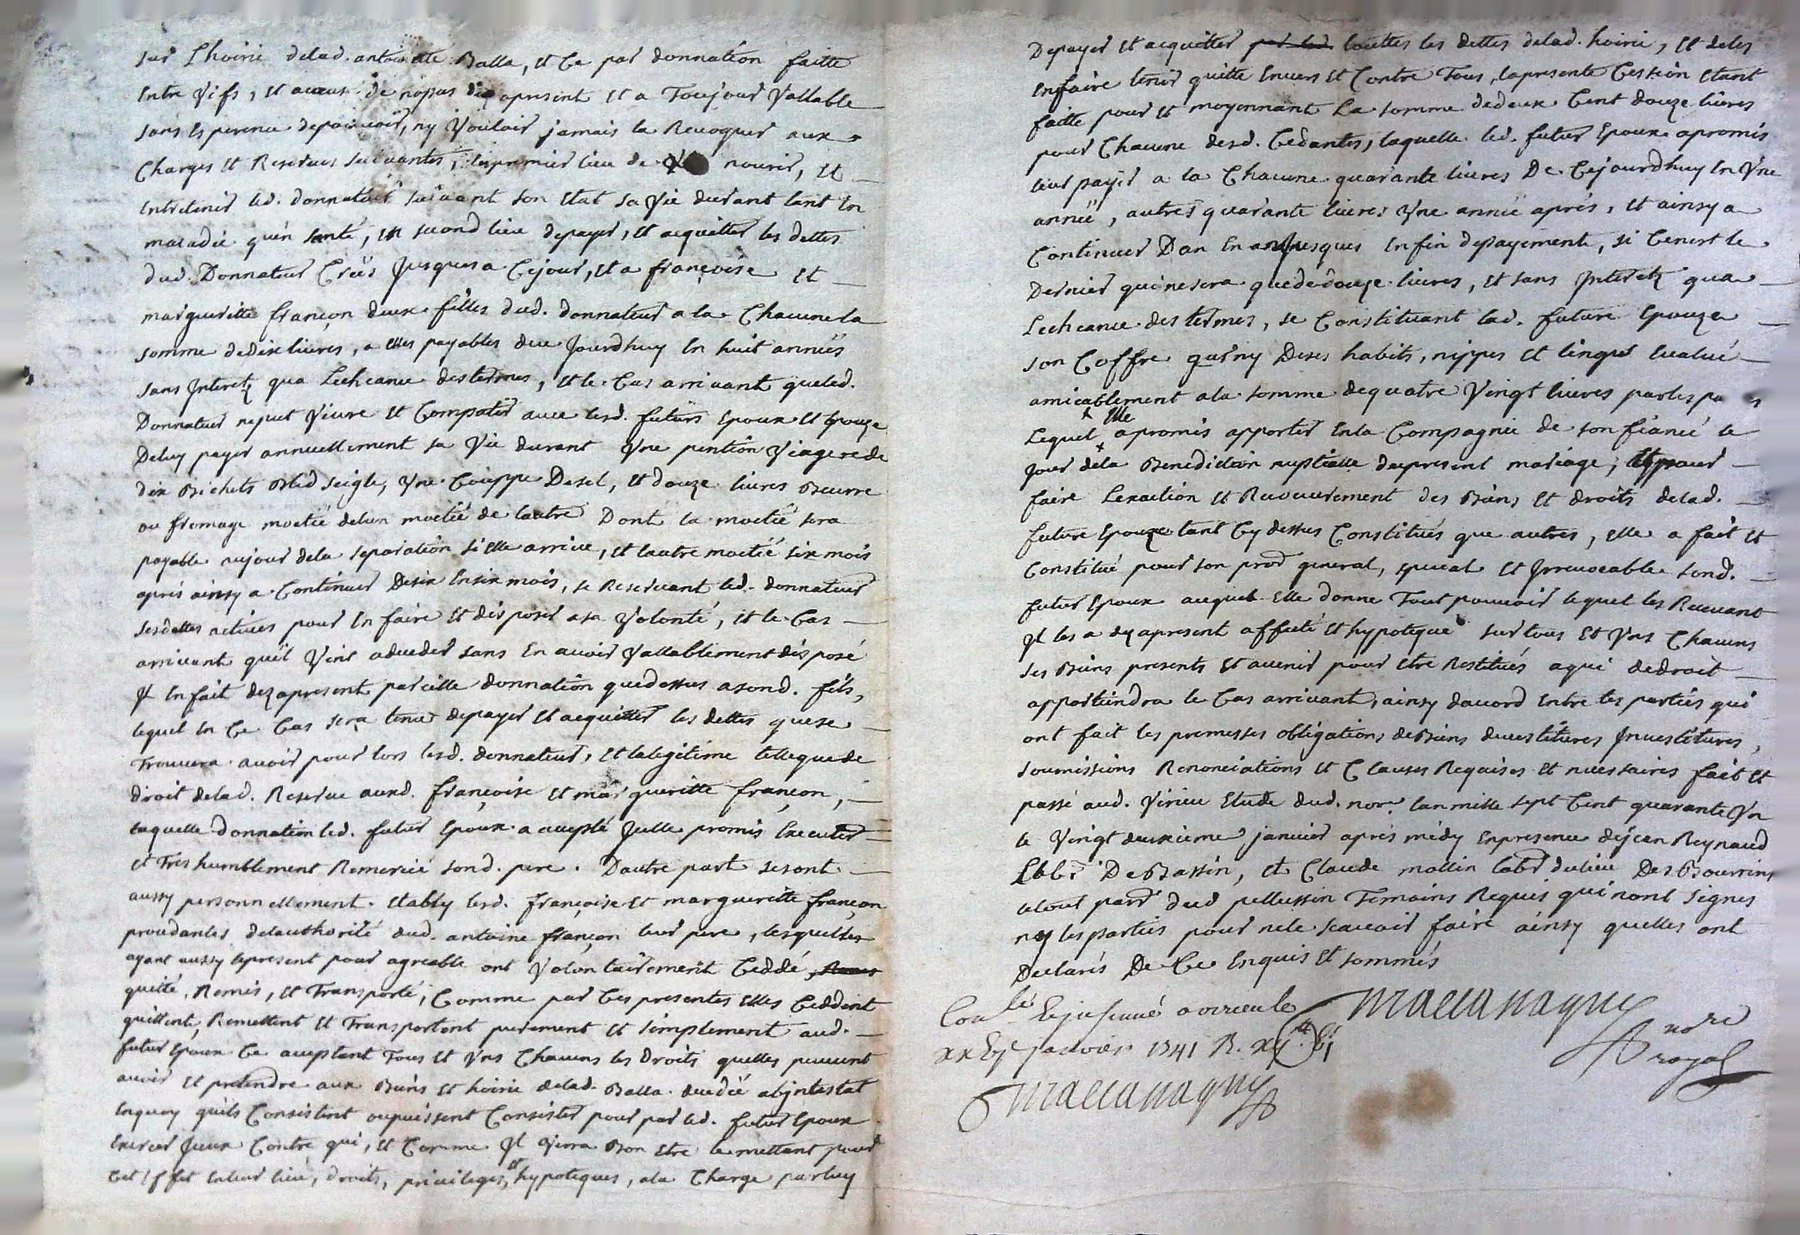 sur l'hoirie delad. antoinette Balla, et ce par donnation faitte
entre vifs, et a cause de nopces dez apresent et a Toujour Vallable
sans esperence depouvoir, ny Vouloir jamais la Revoquer aux
Charges et Reserves suivantes, enpremier lieu de nourir, et
entretenir led. donnateur suivant son Etat sa Vie durant tant en
maladie quén santé, en second lieu depayer, et acquitter les dettes
dud. Donnateur Créés Jusquesa Cejour, et a françoise et
margueritte françon deux filles dud. donnateur a la Chacune la
somme dedix livres, a elles payables dece Jourdhuy en huit années
sans Interetz qua Lecheance des termes, et le Cas arrivant queled.
Donnateur neput Vivre et Compatir avec lesd. futurs Epoux et Epouze
Deluy payer annuellement sa Vie durant Une pention Viagere de
dix Bichets Bled seigle, Une Couppe Desel, et douze livres Beurre
ou fromage moctié delun moctié de lautre Dont la moctié sera
payable aujour dela separation si elle arrive, et lautre moctié six mois
aprés ainsy a Continuer Desix Ensix mois, se Reservant led. donnateur
sesdettes actives pour en faire et disposer asa Volonté, et le Cas
arrivant quél Vint adeceder sans En avoir Vallablement disposé
Jl en fait dezapresent pareille donnation quedessus asond. fils,
lequel en Ce Cas sera tenu depayer et acquitter les dettes quese
Trouvera avoir pour lors led. donnateur, et lalegitime telleque de
droit delad. Reserve auxd. françoise et margueritte françon,
laquelle donnation led. futur Epoux a accepté Jcelle promis Executer
et Tres humblement Remercié sond. pere. Dautre part sesont
aussy personnellement Etably lesd. françoise et margueritte françon
procedantes delauthorité dud. antoine françon leur pere, lesquelles
ayant aussy lepresent pour agreable ont Volontairement Ceddé,
quitté, Remis, et Transporté, Comme par Ces presentes elles Ceddent
quittent, Remettent et Transportent purement et simplement aud.
futur Epoux Ce acceptant Tous et Uns Chacuns les droits quelles peuvent
avoir et pretendre aux Biens et hoirie delad. Balla decedée abjntestat
Enquoy quils Consistent oupuissent Consister pour par led. futur Epoux
Exercer Jceux Contre qui, et Comme Jl verra Bon Etre le mettant pour
Cet Effet enleur lieu, droits, privileges, et hypoteques, ala Charge parluy
Depayer et acquitter touttes les dettes delad. hoirie, et deles
en faire tenir quitte Envers et Contre Tous, lapresente Cession etant
faitte pour et moyennant La somme dedeux Cent douze livres
pour Chacune desd. Cedantes, laquelle led. futur Epoux apromis
leur payer a la Chacune quarante livres De Cejourdhuy en Une
année, autres quarante livres Une année aprés, et ainsy a
Continuer Dan en an Jusques enfin depayement, si Cenest le
Dernier quinesera quededouze livres, et sans Interetz qua
Lecheance des termes, se Constituant lad. future Epouze
son Coffre garny Deses habits, nippes et linges Evalué
amicablement ala somme dequatre Vingt livres parles
Lequel elle apromis apporter Enla Compagnie de son fiancé le
jour dela Benediction nuptialle dupresent mariage, Et pour
faire Lexaction et Recouvrement des Biens et droits delad.
future Epouze tant Cy dessus Constitués que autres, elle a fait et
Constitué pour son proc.r general, special et Jrrevocable sond.
futur Epoux auquel Elle donne Tout pouvoir lequel les Recevant
Jl les a dez apresent affecté et hypotequé sur tous et Uns Chacuns
ses Biens presents et avenir pour etre Restitués aqui dedroit
appartiendra le Cas arrivant, ainsy dacord Entre les parties qui
ont fait les promesses obligations deBiens devestitures Jnvestitures,
soumissions Renonciations et Clauses Requises et necessaires fait et
passé aud. Virieu Etude dud. nore lan mille sept Cent quarante Un
le Vingt deuxieme janvier aprés médy enpresence dejean Reynaud
DeBassin, et Claude mollin labr dulieu Des Bourrins
letout parr dud pellussin Temoins Requis qui nont signés
ny les parties pour nele scavoir faire ainsy quelles ont
Declarés De Ce Enquis et sommés
Maccanaguy
nore
royal
janvier 1741 R.
Maccanaguy